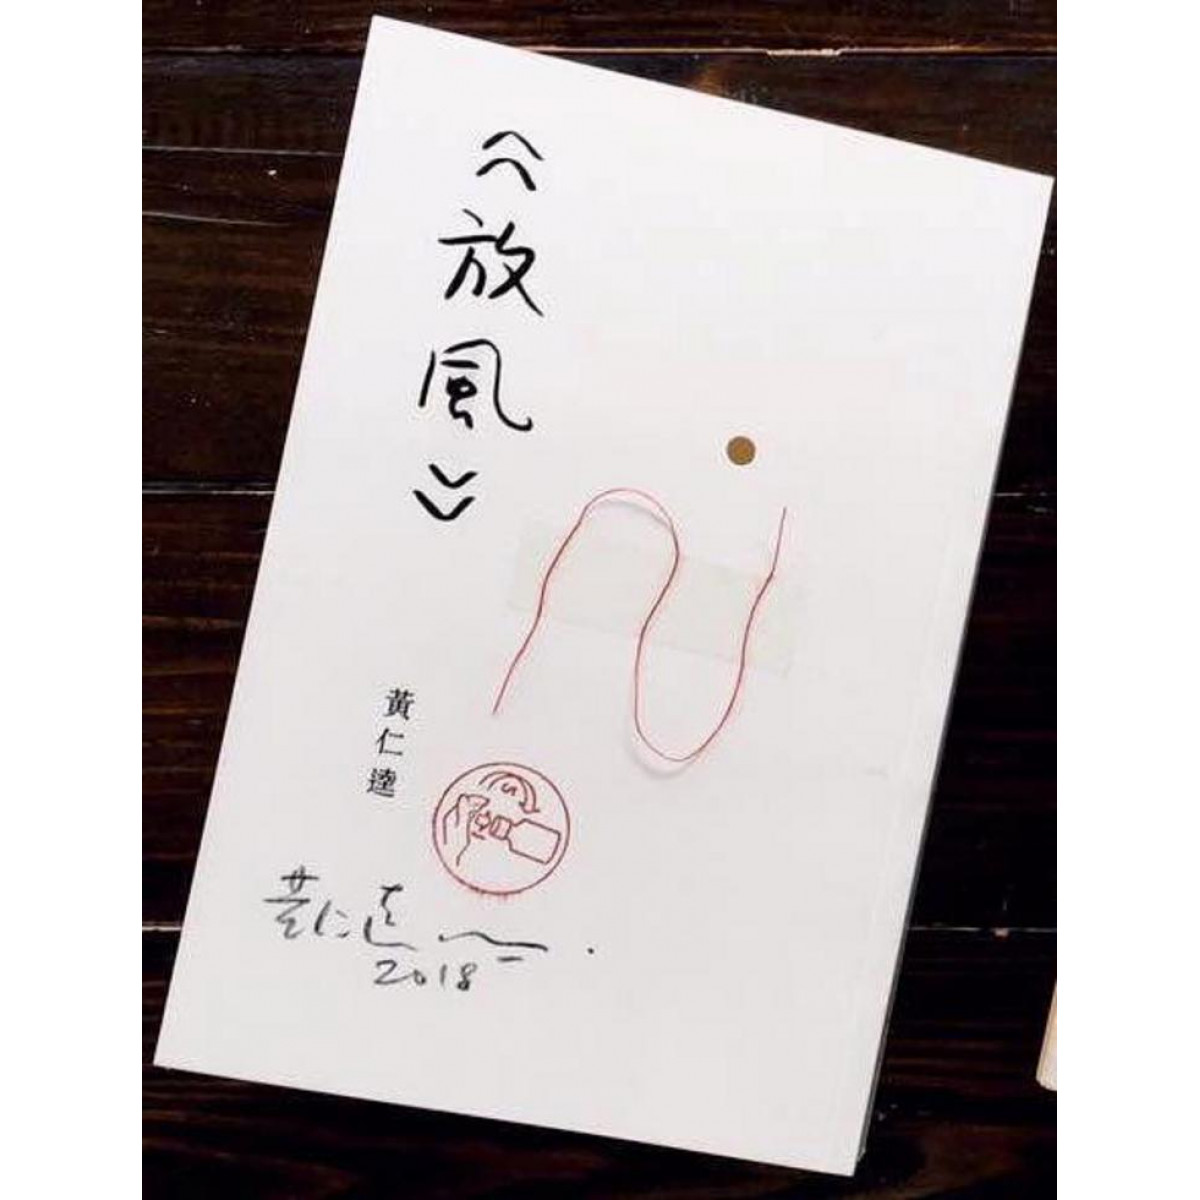 《放風》
黃仁逵
黃仁逵
2018